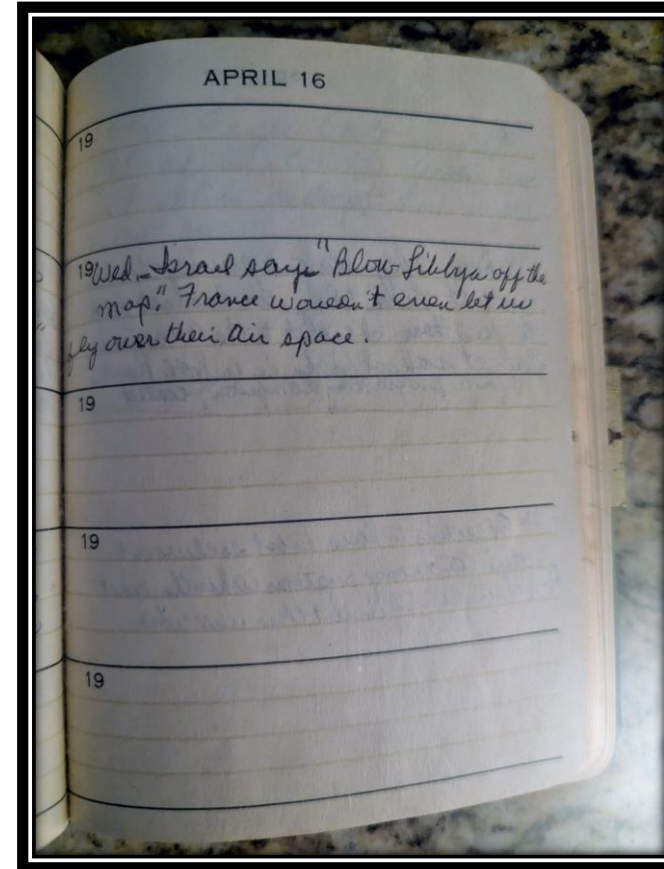 APRIL 16
19
19 Wed. - Israel says "Blow Libbya off the
map." France wouldn't even let us
fly over their air space.
19
19
19